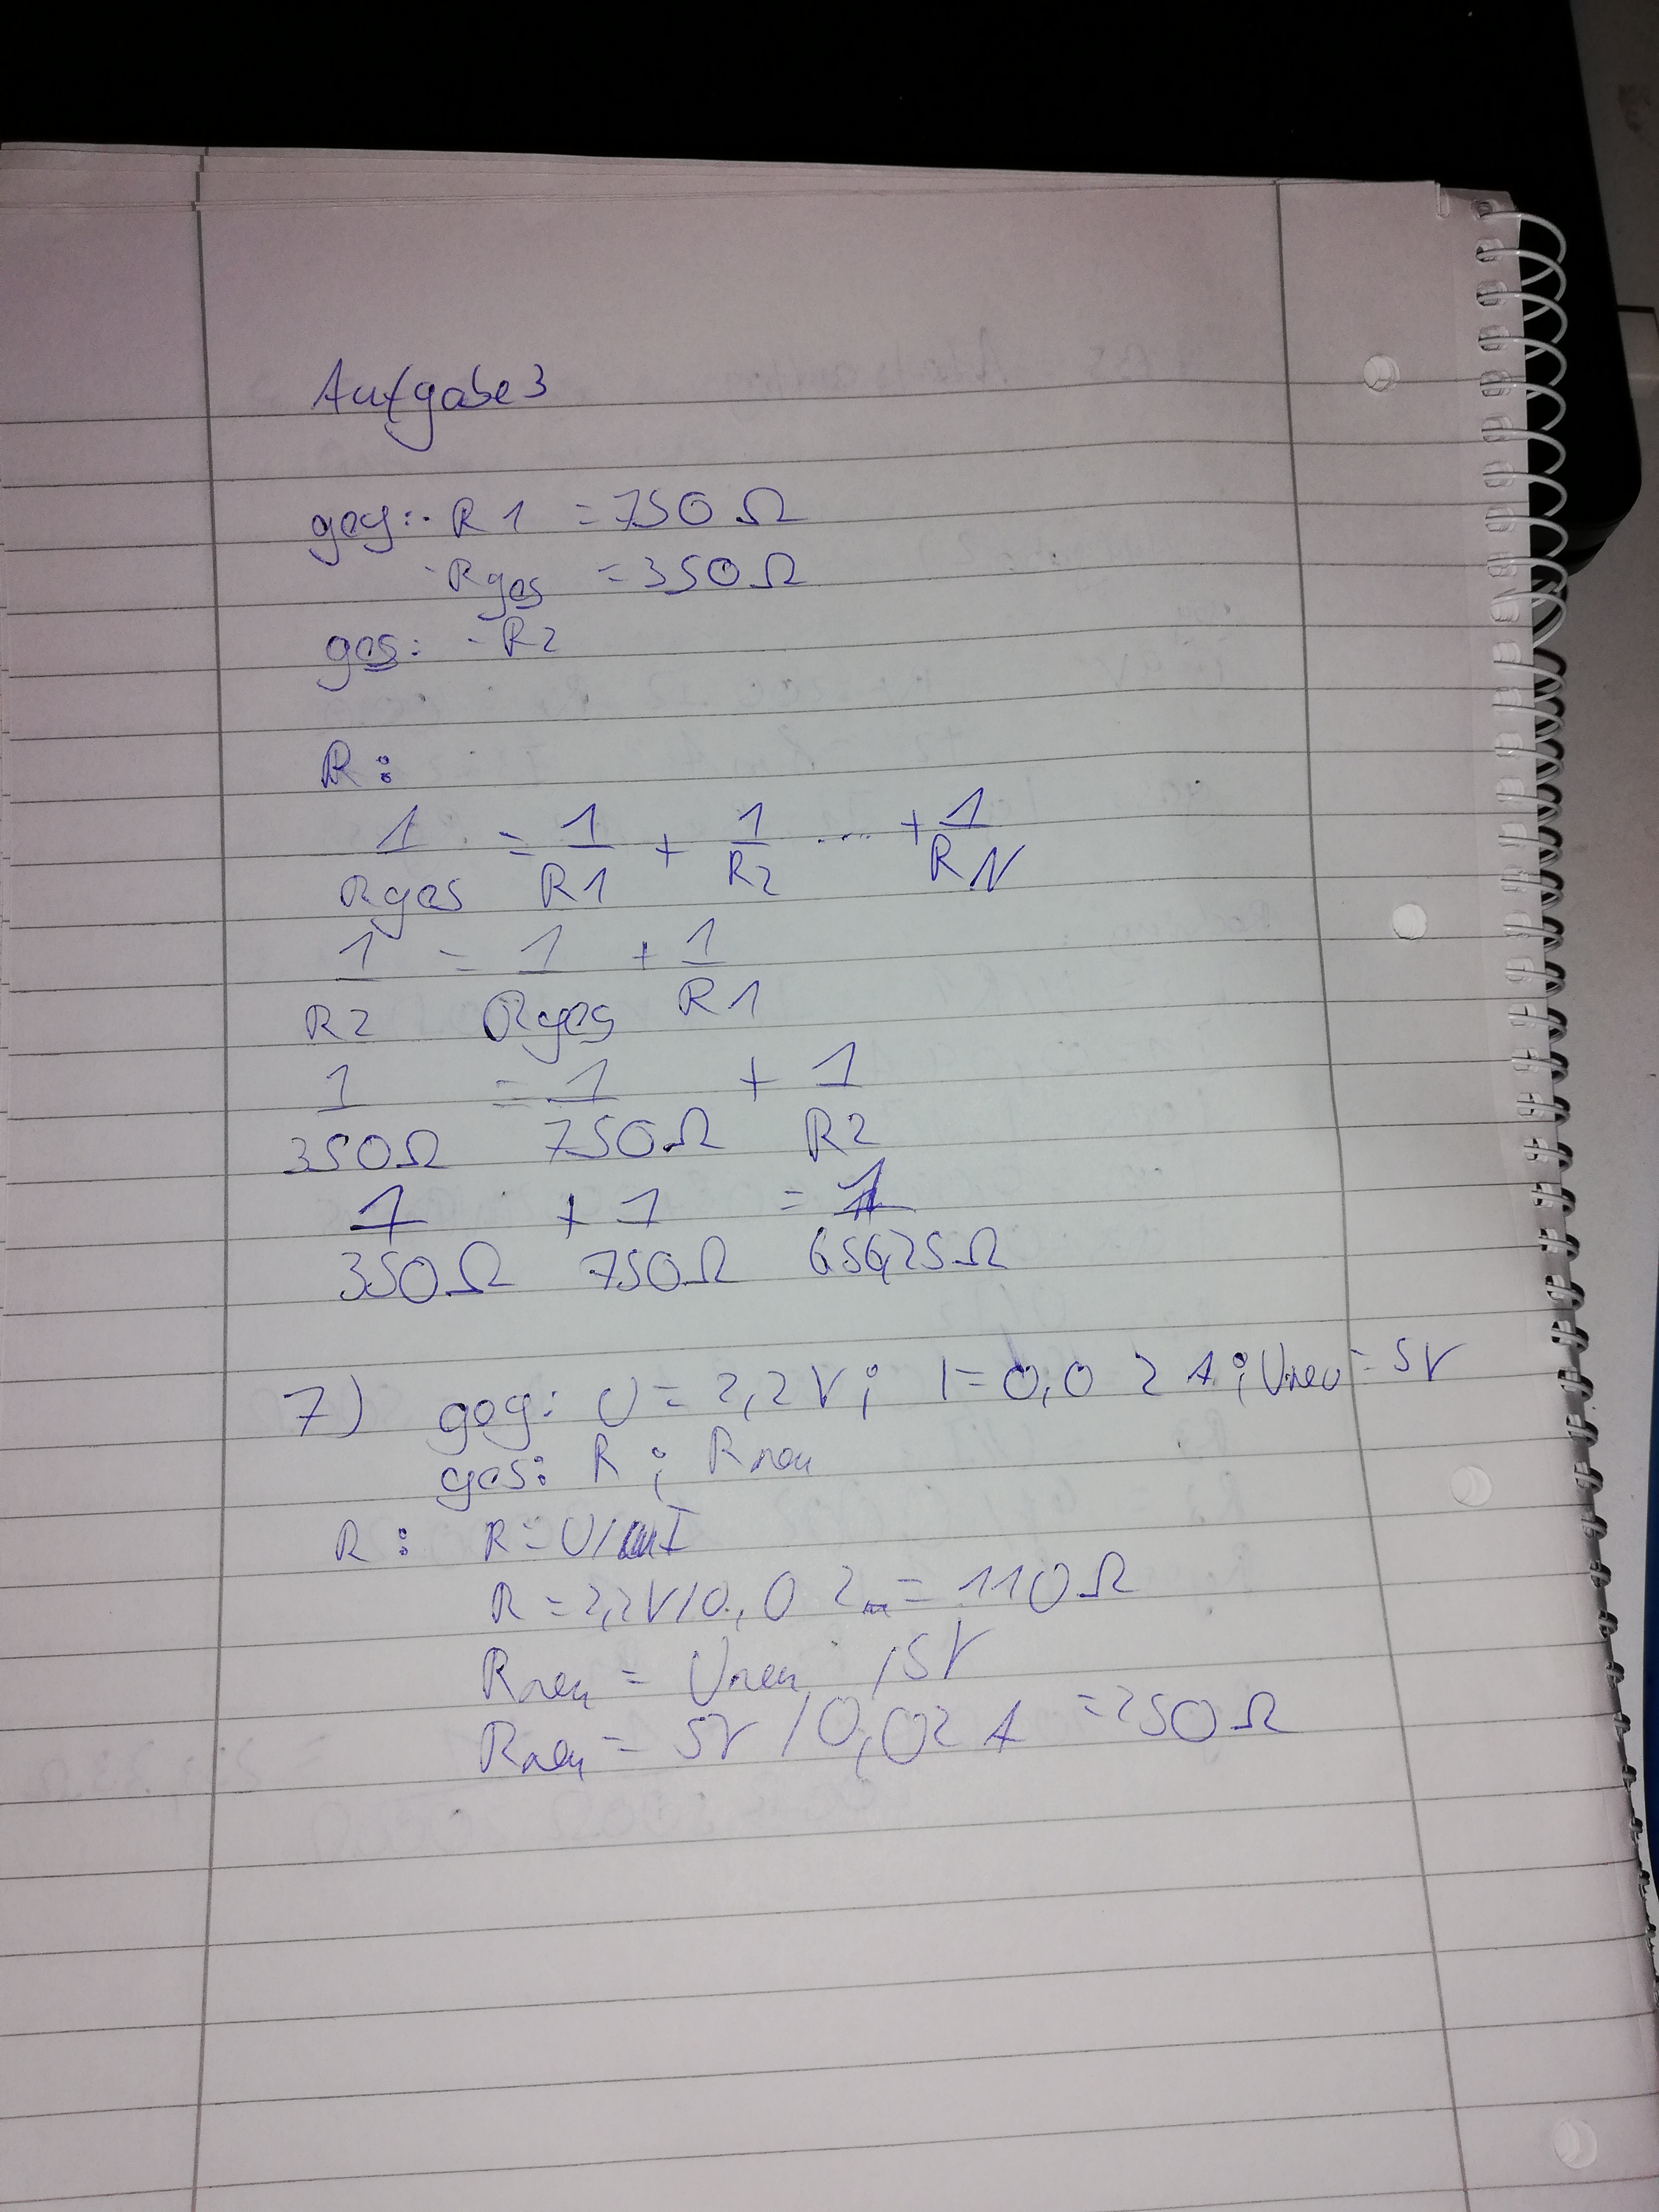 Aufgabe 3
geg: · R1 = 750 Ω
· Rges = 350 Ω
ges: · R2
R:
1/Rges = 1/R1 + 1/R2 .... + 1/RN
1/R2 = 1/Rges + 1/R1
1/350Ω = 1/750Ω + 1/R2
1/350Ω + 1/750Ω = 1/656,25Ω
7) geg: U = 2,2V; I = 0,02 A; Uneu = 5V
ges: R; Rneu
R: R = U/I
R = 2,2V/0,02 = 110Ω
Rneu = Uneu /5V
Rneu = 5V /0,02 A = 250 Ω